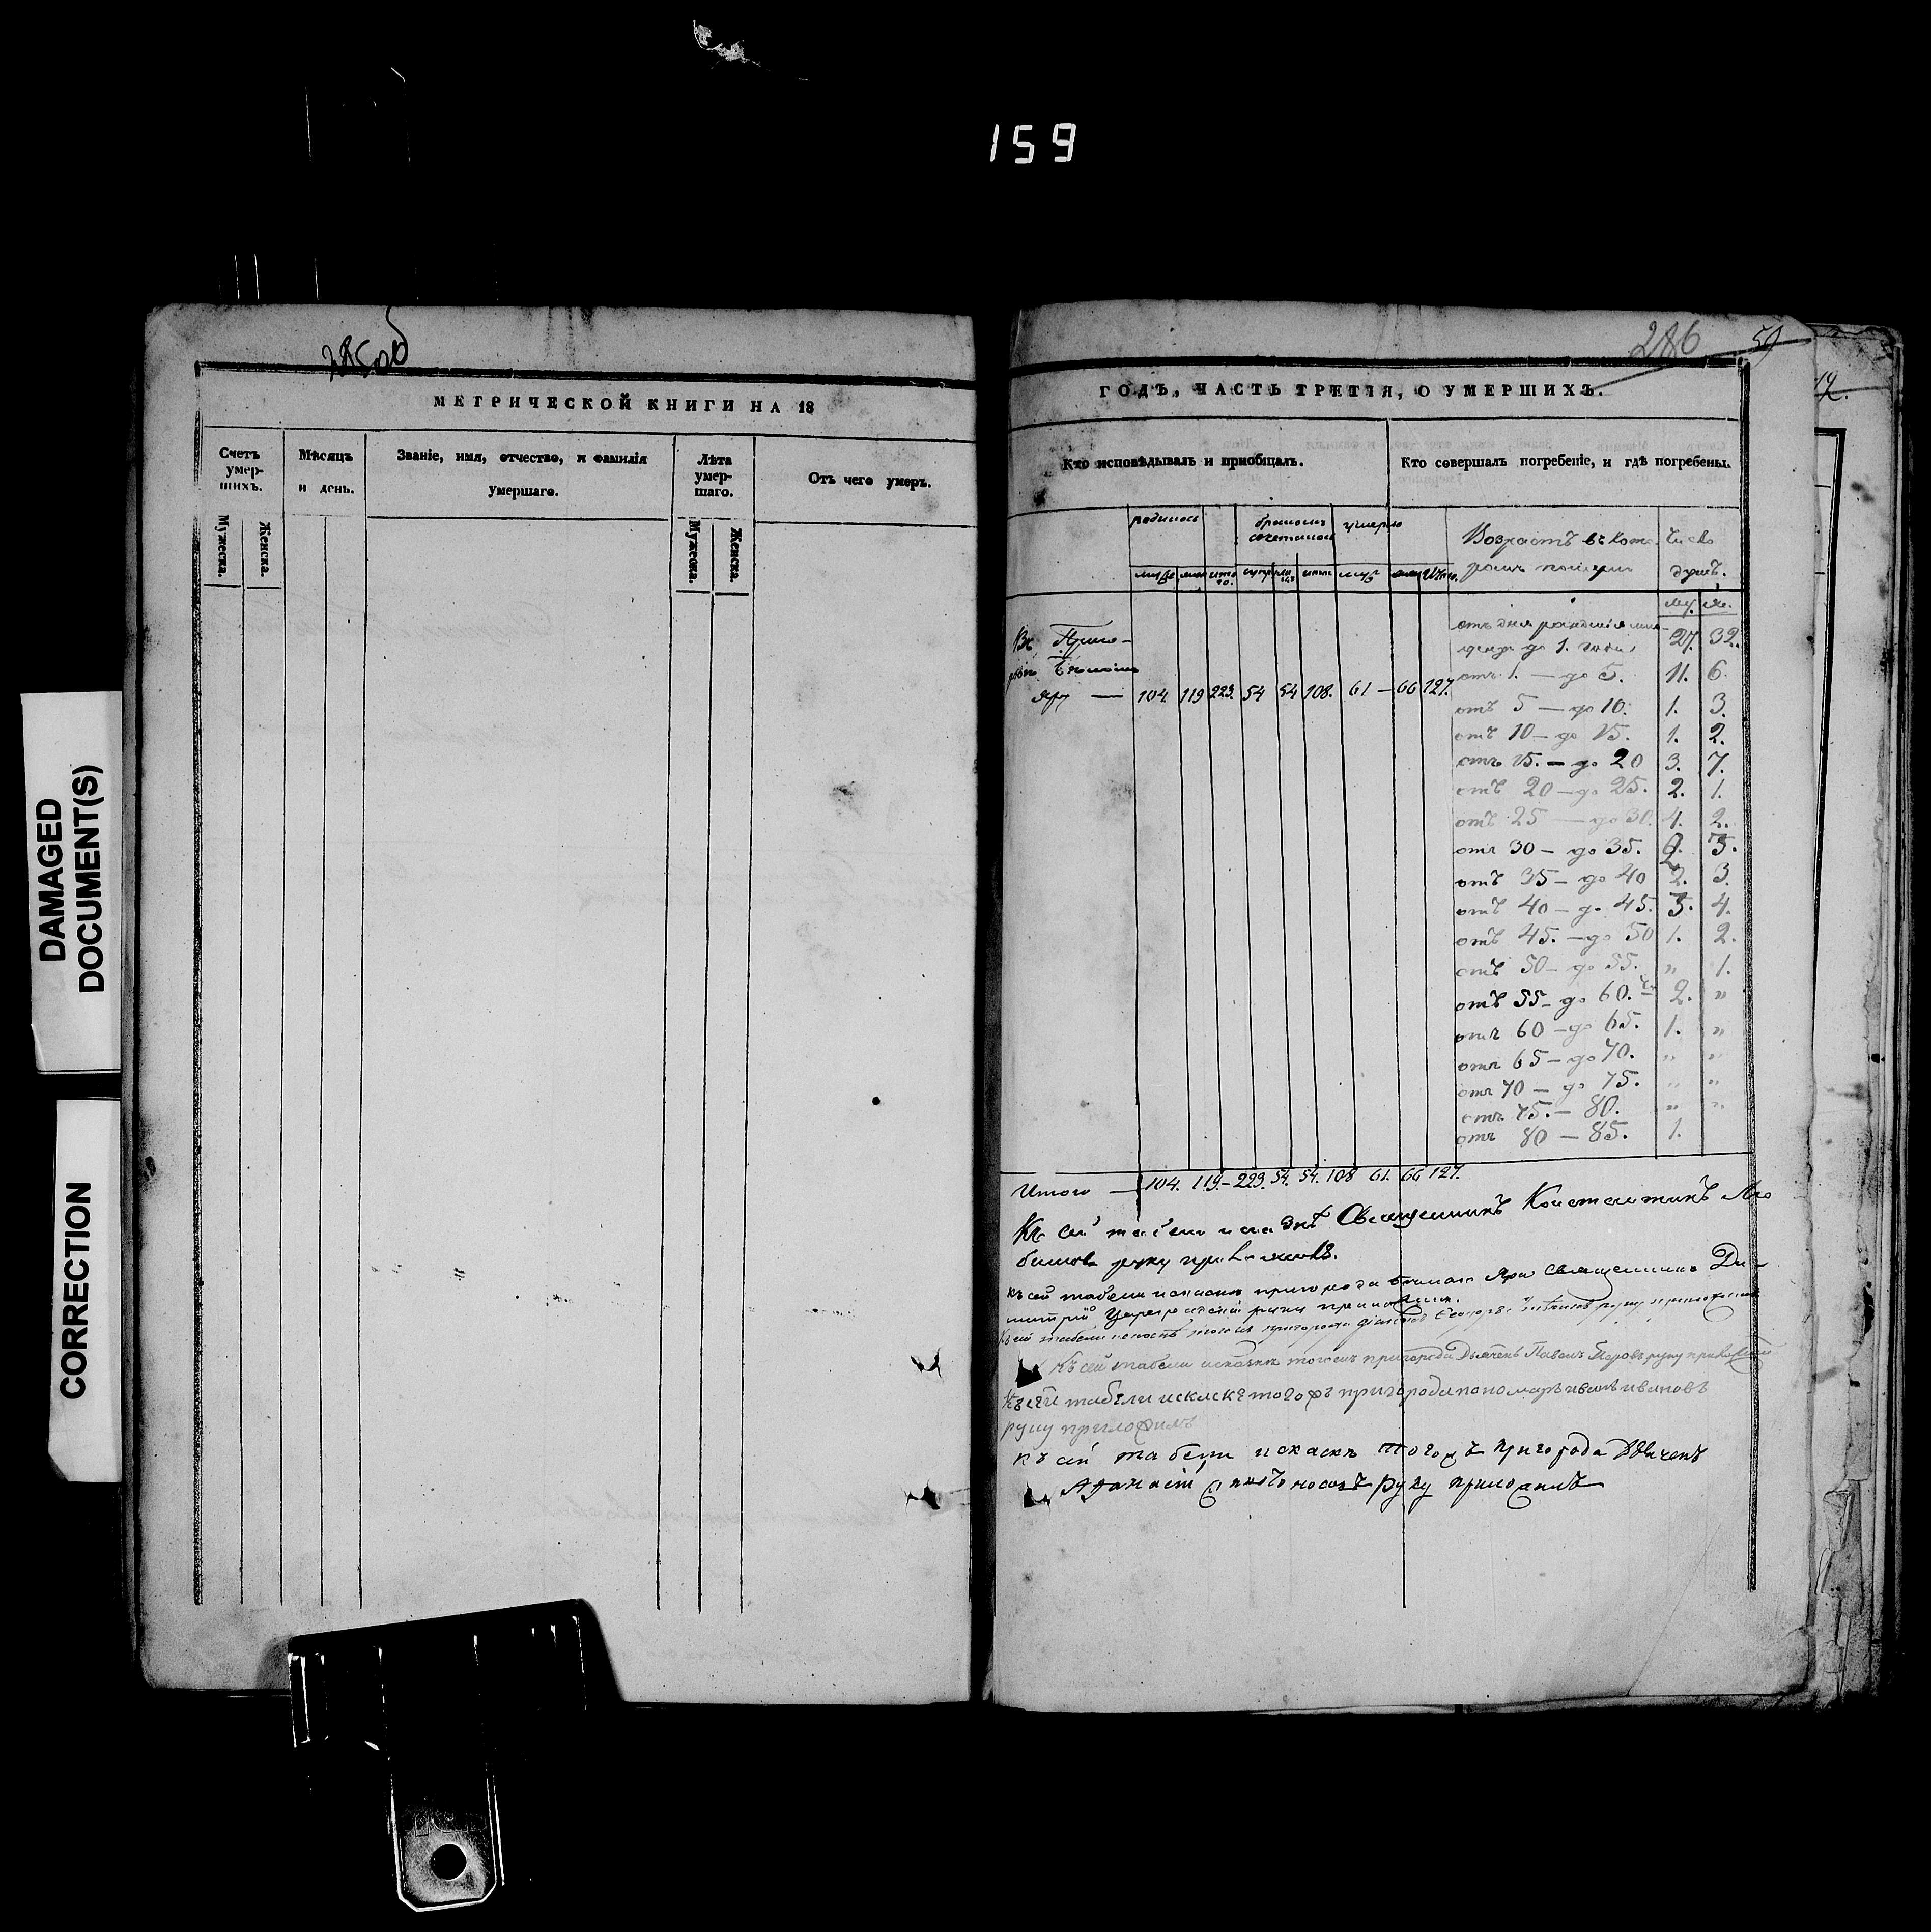 159
DAMAGED
DOCUMENT(S)
CORRECTION
285об
МЕТРИЧЕСКОЙ КНИГИ НА 18
Счетъ умер-шихъ.
Мужеска.
Женска.
Мѣсяцъ и день.
Званіе, имя, отчество, и фамилія умершаго.
Лѣта умер-шаго.
Мужеска.
Женска.
Отъ чего умеръ.
286
59
12.
ГОДЪ, ЧАСТЬ ТРЕТІЯ, О УМЕРШИХЪ.
Кто исповѣдывалъ и пріобщалъ.
Кто совершалъ погребеніе, и гдѣ погребены.
родилось
умерло
Возрастъ въ кото-
Число
душъ.
му. же.
отъ дня рожденія
до 1. года 27. 32.
Яру — 104. 119 223. 54 54 108. 61 — 66 127.
отъ 1. — до 5. 11. 6.
отъ 5 — до 10. 1. 3.
отъ 10 — до 15. 1. 2.
отъ 15. — до 20 3. 7.
отъ 20 — до 25. 2. 1.
отъ 25 — до 30. 4. 2.
отъ 30 — до 35. 2. 3.
отъ 35 — до 40 2. 3.
отъ 40 — до 45. 3. 4.
отъ 45. — до 50 1. 2.
отъ 50 — до 55. " 1.
отъ 55 — до 60. 2. "
отъ 60 — до 65. 1. "
отъ 65 — до 70. " "
отъ 70 — до 75. " "
отъ 75. — 80. " "
отъ 80 — 85. 1.
Итого — 104. 119. — 223. 54. 54. 108 61. 66 127.
Къ сей табели и сказкѣ Священникъ Константинъ
руку приложилъ.
Къ сей табели и сказкѣ пригорода Бѣлаго Яра Священникъ Ди-
митрій руку приложилъ.
Къ сей табели и сказкѣ тогожъ пригорода діаконъ руку приложилъ
Къ сей табели и сказкѣ тогожъ пригорода Дьячекъ Павелъ руку приложилъ
Къ сей табели и скаскѣ тогожъ пригорода пономарь иванъ ивановъ
руку приложилъ
къ сей табели и скаскѣ тогожъ пригорода Дьячекъ
Афанасій руку приложилъ